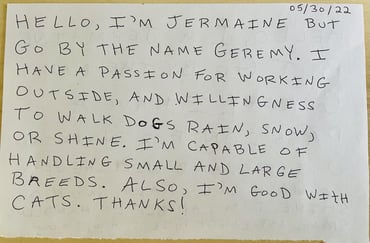 05/30/22
HELLO, I'M JERMAINE BUT
GO BY THE NAME GEREMY. I
HAVE A PASSION FOR WORKING
OUTSIDE, AND WILLINGNESS
TO WALK DOGS RAIN, SNOW,
OR SHINE. I'M CAPABLE OF
HANDLING SMALL AND LARGE
BREEDS. ALSO, I'M GOOD WITH
CATS. THANKS!